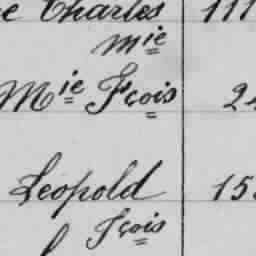 Charles 111
Mie
Mie Fçois 2
Leopold 15
Fçois